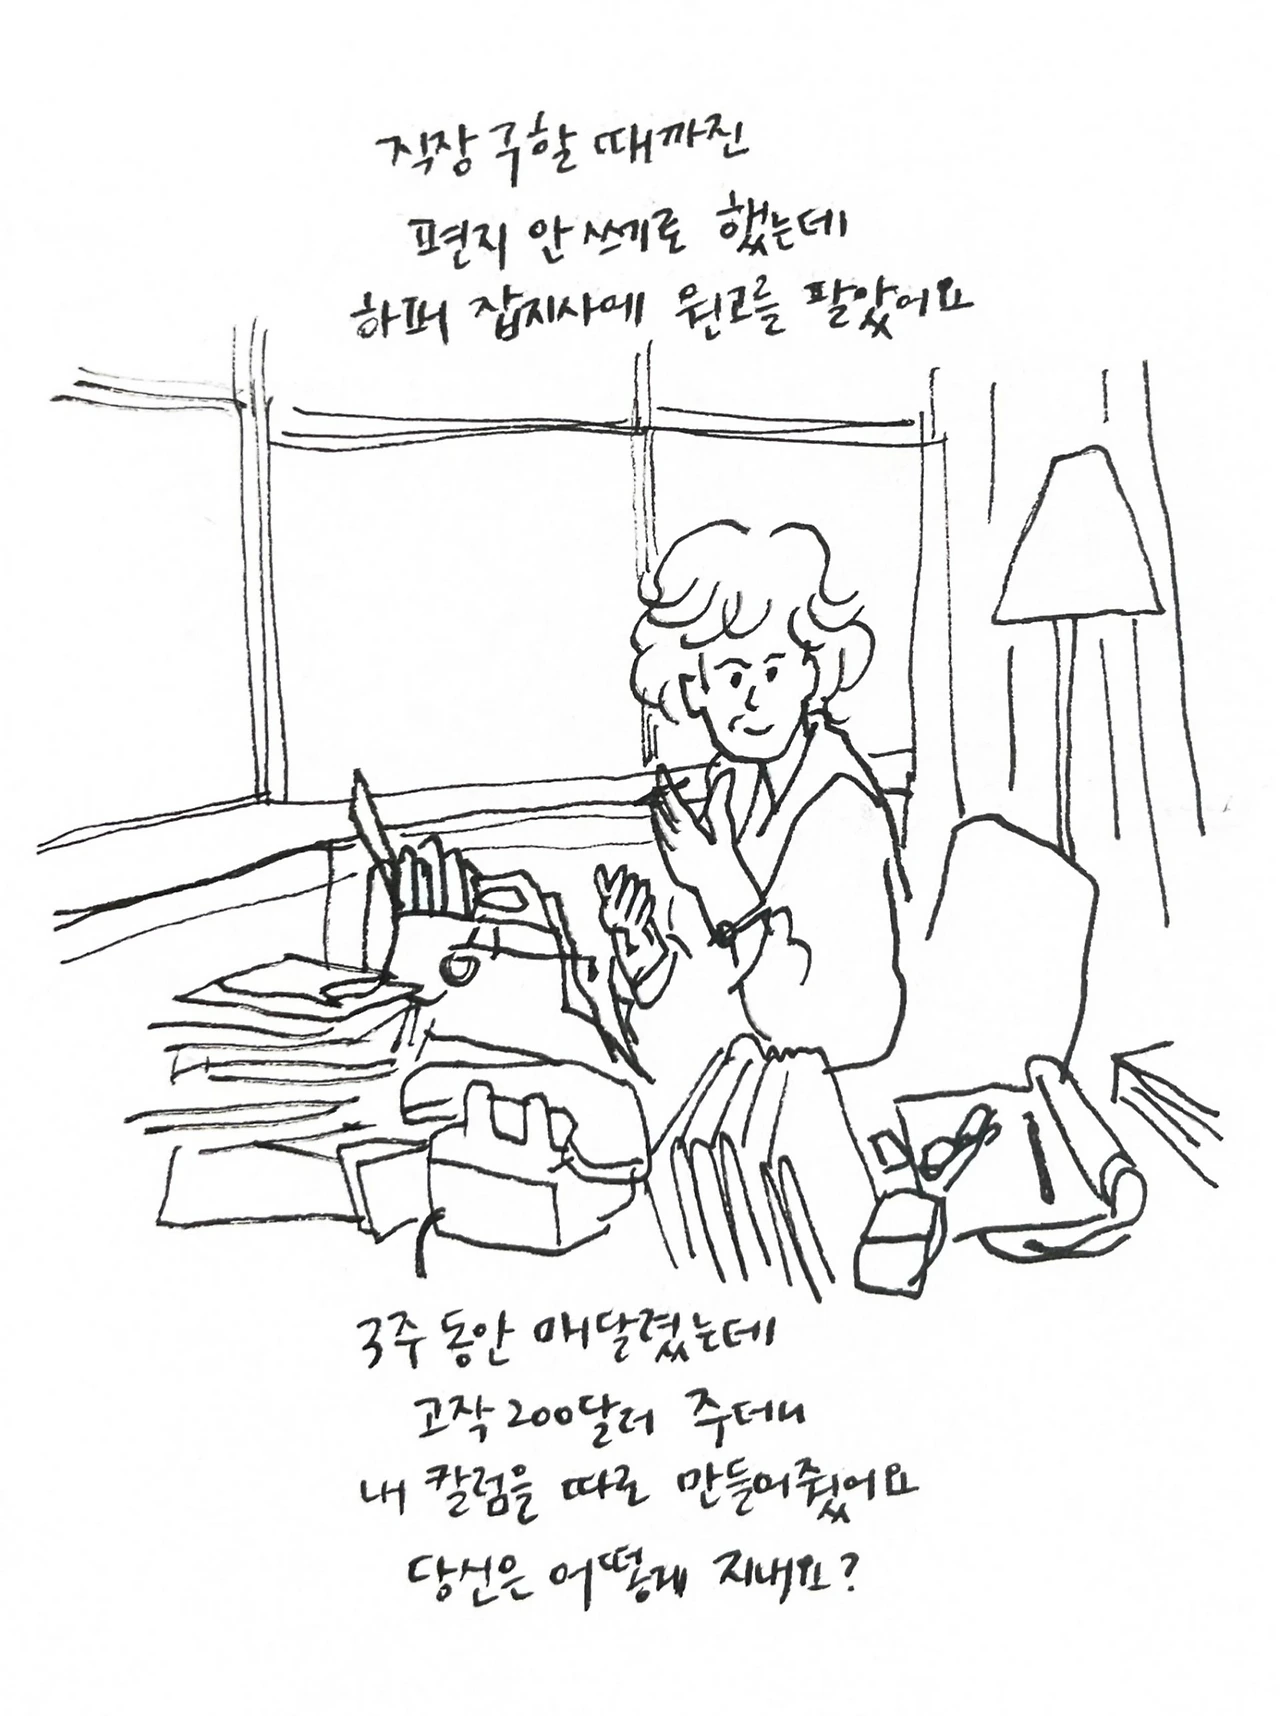 직장 구할 때까진
편지 안 쓰기로 했는데
하퍼 잡지사에 원고를 팔았어요
3주 동안 매달렸는데
고작 200달러 주더니
내 칼럼을 따로 만들어줬어요
당신은 어떻게 지내요?